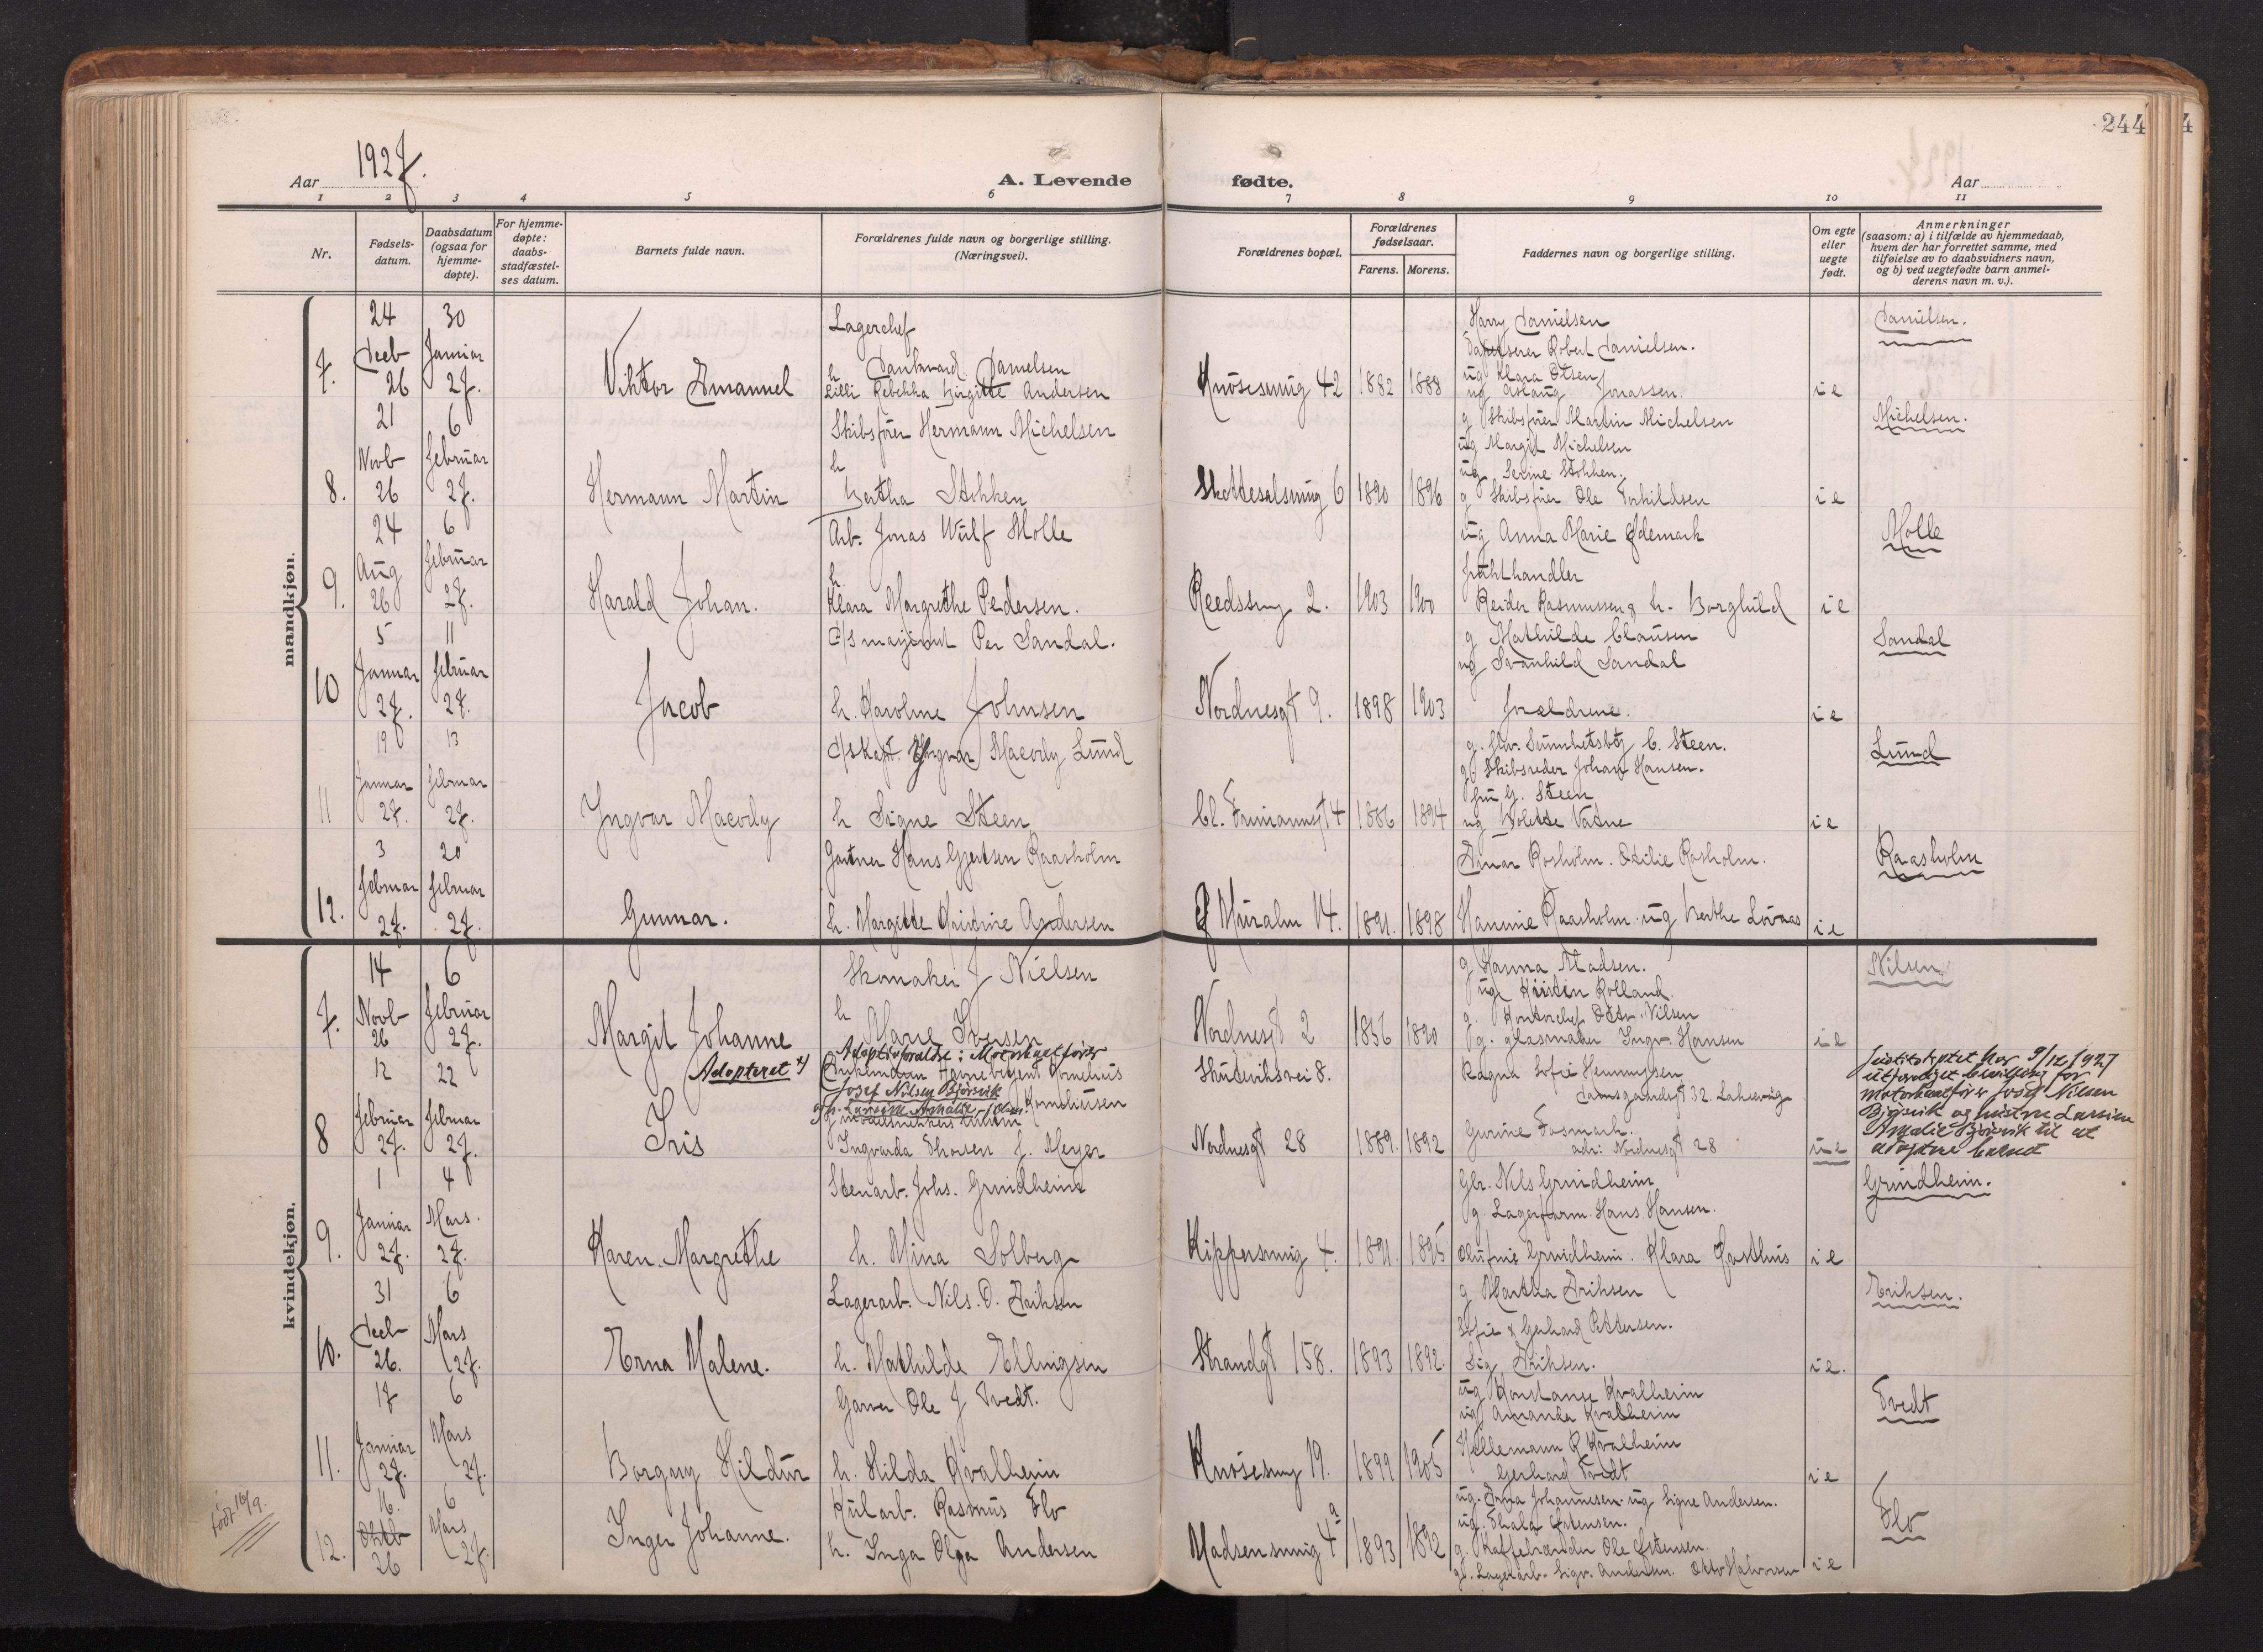 244
Aar 1927.
A. Levende fødte.
Aar
1 2 3 4 5 6 7 8 9 10 11
Nr.
Fødsels-
datum.
Daabsdatum
(ogsaa for
hjemme-
døpte).
For hjemme-
døpte:
daabs-
stadfæstel-
ses datum.
Barnets fulde navn.
Forældrenes fulde navn og borgerlige stilling.
(Næringsvei).
Forældrenes bopæl.
Forældrenes
fødselsaar.
Farens. Morens.
Faddernes navn og borgerlige stilling.
Om egte
eller
uegte
født.
Anmerkninger
(saasom: a) i tilfælde av hjemmedaab,
hvem der har forrettet samme, med
tilføielse av to daabsvidners navn,
og b) ved uegtefødte barn anmel-
derens navn m. v.).
mandkjøn.
7. 24 Decb 26 30 Januar 27. Viktor Emanuel
Lagerchef
Dankward Danielsen
h Lilli Rebekka Birgitte Andersen
Knøsesmug 42 1882 1888
Harry Danielsen
Robert Danielsen.
ug Klara Olsen
ug Aslaug Jonassen
i e
Danielsen.
8. 21 Novb 26 6 Februar 27. Hermann Martin
Skibsfører Hermann Michelsen
h
Bertha Stokken
Skottesalsmug 6 1890 1896
g Skibsfører Martin Michelsen
ug Margit Michelsen
ug Serine Stokken.
g Skibsfører Ole Torkildsen
i e
Michelsen.
9. 24 Aug 26 6 Februar 27. Harald Johan.
Arb. Jonas Wulf Molle
h.
Klara Margrethe Pedersen.
Reedssmug 2. 1903 1900
ug Anna Marie Ødemark
Frukthandler
Reidar Rasmussen & h. Borghild
i e
Molle
10 5 Januar 27. 11 Februar 27. Jacob
Per Sandal.
h. Karoline Johnsen
Nordnesgt 9. 1898 1903
g Mathilde Clausen
ug Svanhild Sandal
Forældrene.
i e
Sandal
11 19 Januar 27. 13 Februar 27. Yngvar Maevdy
D/s Kapt. Yngvar Maevdy Lund
h Signe Steen
Cl. Frimannsgt 4 1886 1894
C. Steen.
g. Skibsreder Johan Hansen.
fru G. Steen
ug Vatne
i e
Lund
12. 3 Februar 27. 20 Februar 27. Gunnar.
Gartner Hans Gjertsen Raasholm
h. Margitte Kristine Andersen
Ø Muralm 14. 1891. 1898
Einar Rosholm. Otilie Rosholm.
Hannie Raasholm ug Berthe Lövaas
i e
Raasholm
kvindekjøn.
7. 14 Novb 26 6 Februar 27. Margit Johanne
Skomaker J Nielsen
h
Marie Iversen
Nordnesgt 2 1886 1890
g Hanna Madsen.
ug Kristen Rolland.
g. Kontorchef Nilsen
g. glasmaker Ingv. Hansen
i e
Nilsen
8 12 Februar 27. 22 Februar 27. Iris
Adopteret x)
Adoptivforældre: Motorskøitefører
Josef Nilsen Bjørsvik
Korneliussen
Ingvarda Thorsen f. Meyer
Skuteviksvei 8.
Nordnesgt 28 1889. 1892
Ragna Sofie Henningsen
Damsgaardsgt 32. Laksevåg
Gurine Fosmark.
adr: Nordnesgt 28
u e
Justitsdeptet har 9/12 1927
utfærdiget bevilling for
motorskøitefører Josef Nilsen
Bjørsvik og hustru Larsine
Amalie Bjørsvik til at
adoptere barnet
9. 1 Januar 27. 4 Mars. 27. Karen Margrethe
Stenarb. Johs. Grindheim
h. Mina Solberg
Kippersmug 4. 1891. 1895
Gbr. Nils Grindheim
g. Lagerform. Hans Hansen.
Olufine Grindheim. Klara Fosthus
i e
Grindheim.
10. 31 Decb 26. 6 Mars 27. Erna Malene.
Lagerarb. Nils. O. Eriksen
h. Mathilde Ellingsen
Strandgt 158. 1893 1892.
g Martha Eriksen
Sofie & Gerhard Pettersen.
Sig Eriksen.
i e.
Eriksen.
11. 17 Januar 27. 6 Mars 27. Borgny Hildur
Garver Ole J Tvedt.
h. Hilda Kvalheim
Knøsesmug 19. 1899 1905
ug Konstanse Kvalheim
ug Amanda Kvalheim
Hellemann R Kvalheim
Gerhard Tvedt
i e
Tvedt
født 16/9.
12. 16. Oktb 26 6 Mars 27. Inger Johanne.
Kularb. Rasmus Flo
h. Inga Olga Andersen
Madsensmug 4a 1893 1892
ug. Erna Johannesen. ug Signe Andersen.
ug. Thala Østensen.
g. Kaffebrænder Ole Østensen
g. Lagerarb. Sigv. Andersen. Otto Halvorsen
i e
Flo